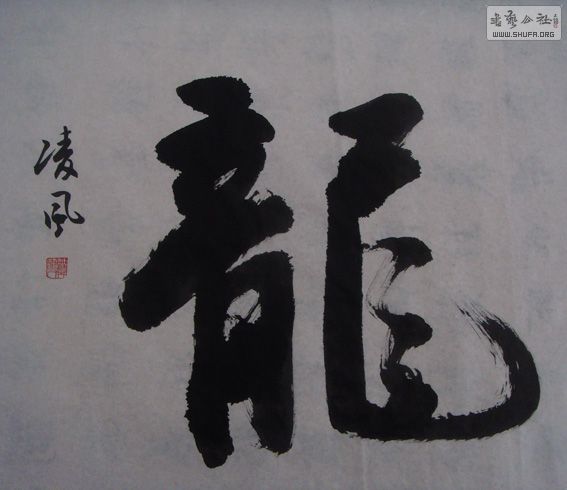 龍
凌風
書藝公社
WWW.SHUFA.ORG